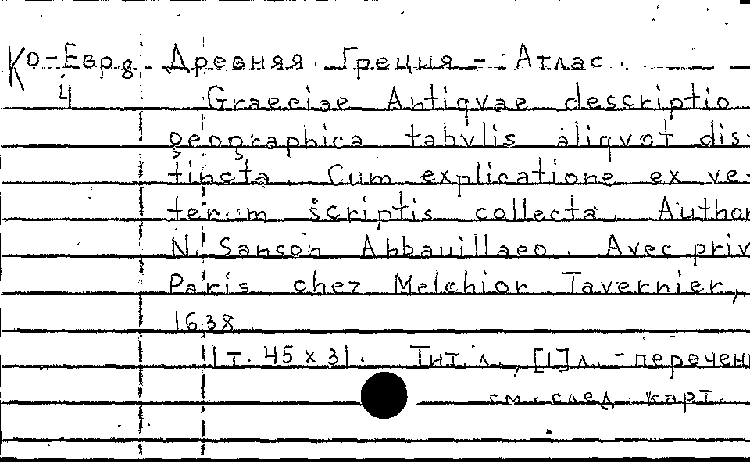 Ко-Евр8. Древняя Греция - Атлас.
4 Graeciae Antiqvae descriptio
geographica tabvlis aliqvot dis-
tincta. Cum explicatione ex ve-
terum scriptis collecta. Author
N. Sanson Abbavillaeo. Avec priv
Paris chez Melchior Tavernier,
1638
1 т. 45 x 31. Тит. л., [1] л. - перечень
см. след. карт.